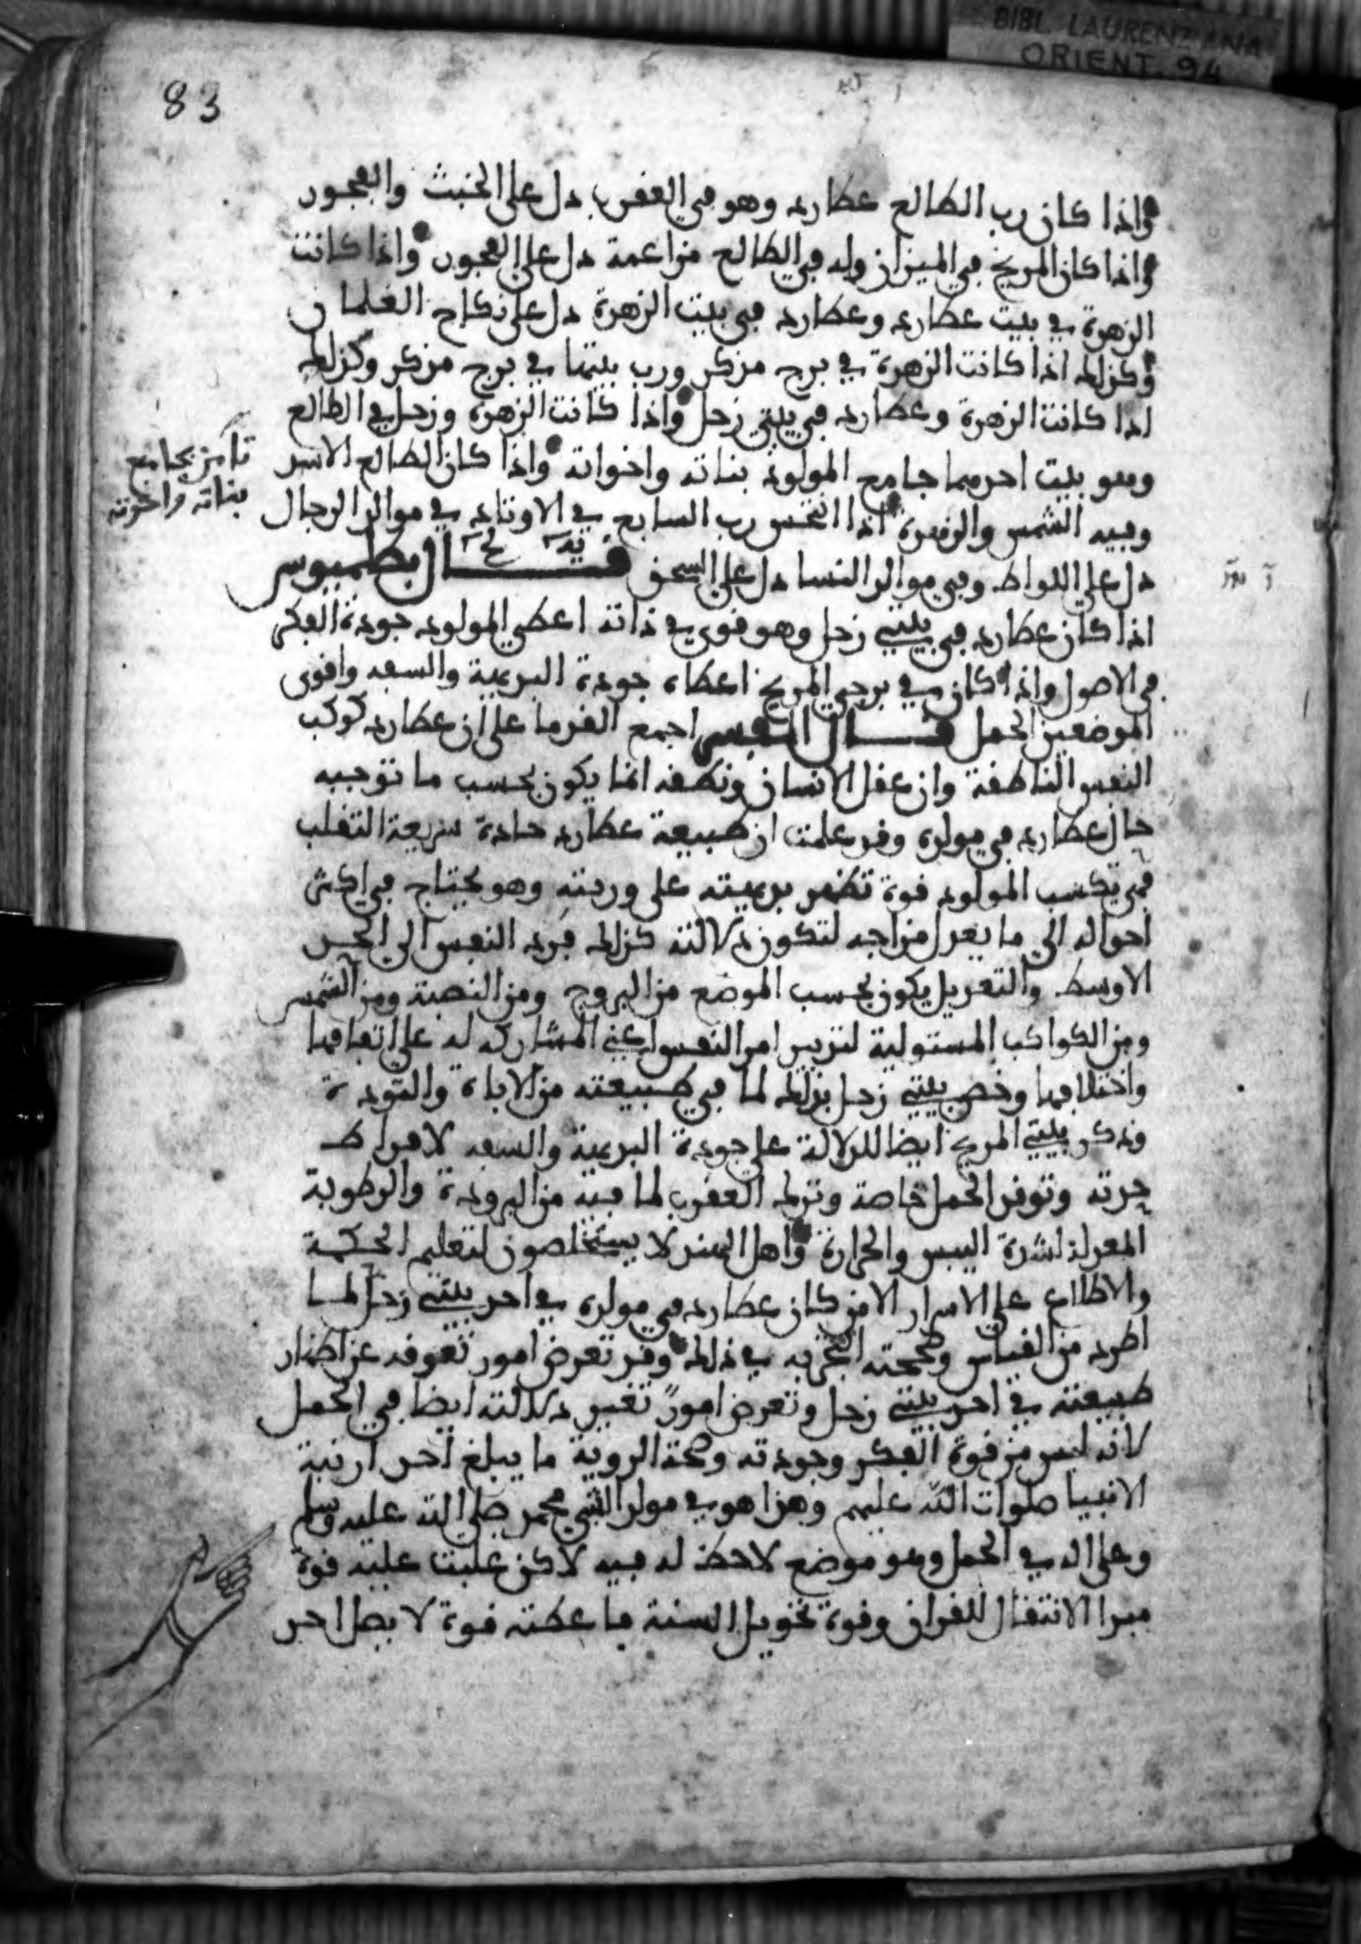 BIBL. LAURENZIANA
ORIENT. 94
83
واذا كان رب الطالع عطارد وهو في العقرب دل على الخبث والفجور
واذا كان المريخ في الميزان وله في الطالع مزاعمة دل على الفجور واذا كانت
الزهرة في بيت عطارد وعطارد في بيت الزهرة دل على نكاح الغلمان
وكذلك اذا كانت الزهرة في برج مذكر ورب بيتها في برج مذكر وكذلك
اذا كانت الزهرة وعطارد في بيتي زحل واذا كانت الزهرة وزحل في الطالع
وهو بيت احدهما جامع المولود بناته واخواته واذا كان الطالع الاسد
وفيه الشمس والزهرة اذا انتحس رب السابع في الاوتاد في مواليد الرجال
دل على اللواط وفي مواليد النسا دل على السحق قال بطلميوس
اذا كان عطارد في بيتي زحل وهو قوي في ذاته اعطى المولود جودة الفكر
في الاصول واذا كان في برجي المريخ اعطاه جودة البديهة والسعد واقوى
الموضعين الحمل قال المفسر اجمع القدما على ان عطارد كوكب
النفس الناطقة وان عقل الانسان ونطقه انما يكون بحسب ما توجبه
حال عطارد في مولده وقد علمت ان طبيعة عطارد حادة سريعة التقلب
فهي تكسب المولود قوة تظهر بديهته على ورويته وهو يحتاج في اكثر
احواله الى ما يعدل مزاجه لتكون دلالته كذلك فرد النفس الى الحد
الاوسط والتعديل يكون بحسب الموضع من البروج ومن النصبة ومن الشمس
ومن الكواكب المستولية لتدبير امر النفس اعني المشاركة له على اتفاقها
واختلافها وخص بيتي زحل بذلك لما في طبيعته من الاناة والتودة
وذكر بيتي المريخ ايضا للدلالة على جودة البديهة والسعد لافراط
حدته وتوفر الحمل خاصة وترك العقرب لما فيه من البرودة والرطوبة
المعدلة لشدة اليبس والحرارة واهل الهند لا يستخلصون لتعليم الحكمة
والاطلاع على الاسرار الا من كان عطارد في مولده في احد بيتي زحل لما
اطرد من القياس وصححته التجربة في ذلك وقد تعرض امور تعوقه عن اظهار
طبيعته في احد بيتي زحل وتعرض امورً تغير دلالته ايضا في الحمل
لانه ليس من قوة الفكر وجودته وصحة الروية ما يبلغ احد رتبة
الانبيا صلوات الله عليهم وهذا هو في مولد النبي محمد صلى الله عليه وسلم
وعلى اله في الحمل وهو موضع لاحظ له فيه لاكن غلبت عليه قوة
مبدا الانتقال للقران وقوة تحويل السنة فاعطته قوة لا يصل احد
تامل يجامع
بناته واخوته